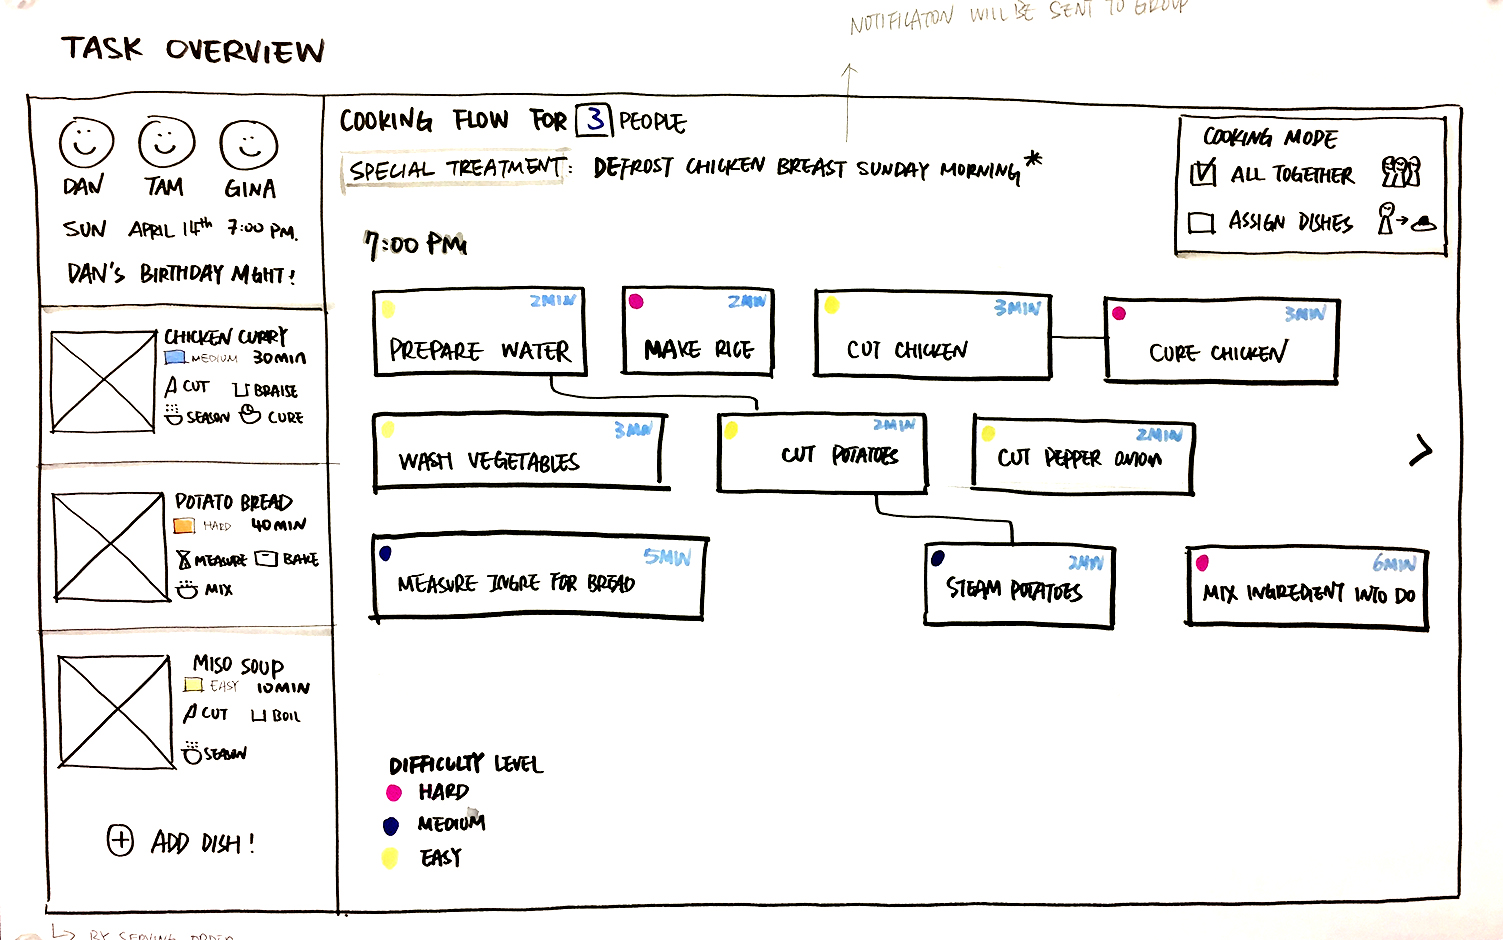 NOTIFICATON WILL BE SENT TO GROUP
TASK OVERVIEW
DAN TAM GINA
SUN APRIL 14th 7:00 PM.
DAN'S BIRTHDAY NIGHT!
CHICKEN CURRY
MEDIUM 30MIN
CUT BRAISE
SEASON CURE
POTATO BREAD
HARD 40MIN
MEASURE BAKE
MIX
MISO SOUP
EASY 10MIN
CUT BOIL
SEASON
+ ADD DISH!
COOKING FLOW FOR 3 PEOPLE
SPECIAL TREATMENT: DEFROST CHICKEN BREAST SUNDAY MORNING*
COOKING MODE
ALL TOGETHER
ASSIGN DISHES
7:00 PM
2MIN
PREPARE WATER
2MIN
MAKE RICE
3MIN
CUT CHICKEN
3MIN
CURE CHICKEN
3MIN
WASH VEGETABLES
2MIN
CUT POTATOES
2MIN
CUT PEPPER ONION
5MIN
MEASURE INGRE FOR BREAD
2MIN
STEAM POTATOES
6MIN
MIX INGREDIENT INTO DO
DIFFICULTY LEVEL
HARD
MEDIUM
EASY
BY SERVING ORDER